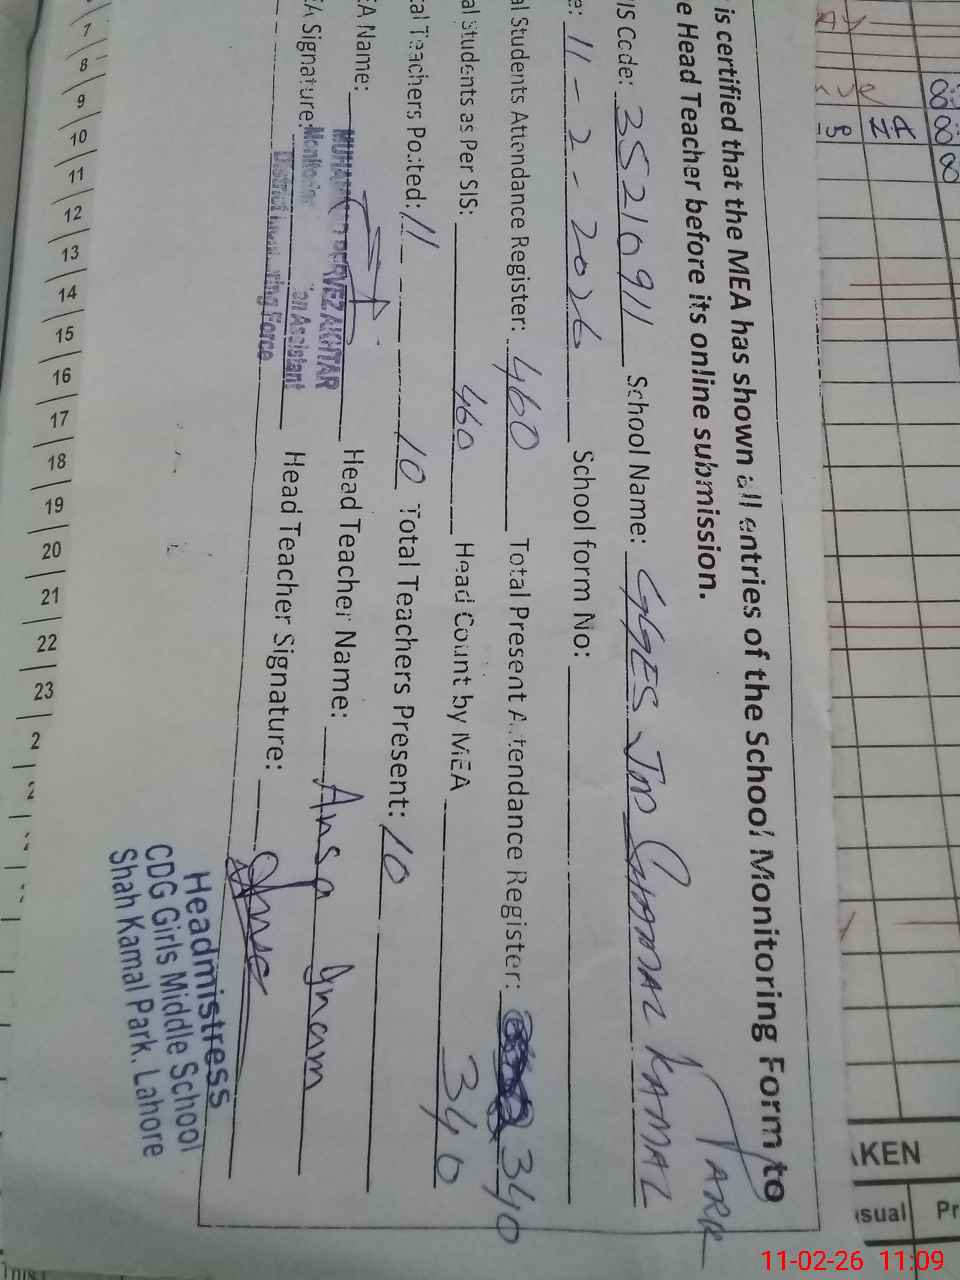 is certified that the MEA has shown all entries of the School Monitoring Form to
e Head Teacher before its online submission.
IS Code: 35210911 School Name: GGES JOP SHAMAL KAMAL PARK
e: 11-2-2026 School form No:
al Students Attendance Register: 460 Total Present Attendance Register: 340
al Students as Per SIS: 460 Head Count by MEA 340
tal Teachers Posted: 11 10 Total Teachers Present: 10
EA Name: PERVEZ AKHTAR Head Teacher Name: Ansa Inam
EA Signature: Monitoring Assistant Head Teacher Signature:
District Force
Headmistress
CDG Girls Middle School
Shah Kamal Park. Lahore
7
8
9
10
11
12
13
14
15
16
17
18
19
20
21
22
23
2
AKEN
asual Pr
11-02-26 11:09